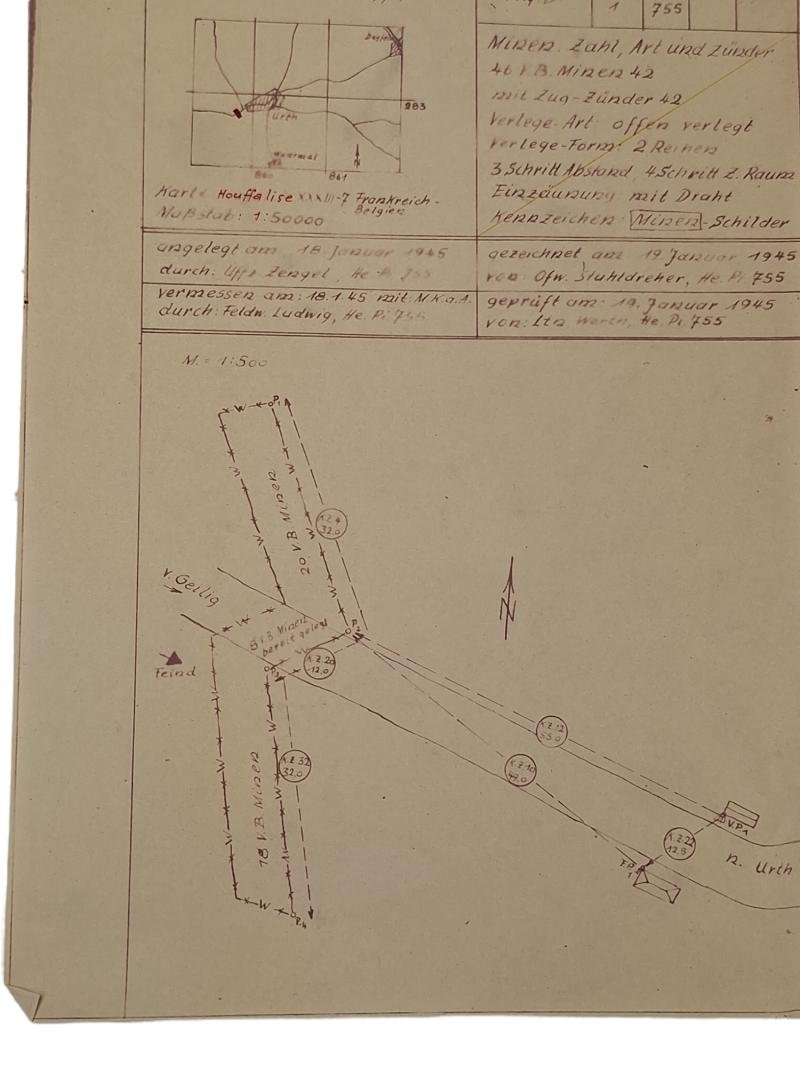 1
755
Minen. Zahl, Art und Zünder
46 V.B. Minen 42
mit Zug-Zünder 42
Verlege-Art: offen verlegt
Verlege-Form: 2 Reihen
3 Schritt Abstand, 4 Schritt Z. Raum
Einzäunung mit Draht
Kennzeichen: Minen-Schilder
283
Urth
841
Karte Houffalise XXXIII-7 Frankreich-
Belgien
Maßstab: 1:50000
angelegt am 18. Januar 1945
durch: Uffz. Zengel, He. Pi 755
gezeichnet am 19. Januar 1945
von: Ofw. Stuhldreher, He. Pi 755
vermessen am: 18.1.45 mit: M.K.a.A.
durch: Feldw. Ludwig, He. Pi 755
geprüft am: 19. Januar 1945
von: Ltn Werth, He. Pi 755
M. = 1:500
P.1
20 V.B. Minen
K.Z.4
32.0
N
v. Geilig
8 V.B. Minen
bereit gelegt
P.
K.Z.20
12.0
Feind
P.3
K.Z.12
55.0
K.Z.32
32.0
K.Z.10
18 V.B. Minen
V.P.1
K.Z.22
12.5
n. Urth
P.4